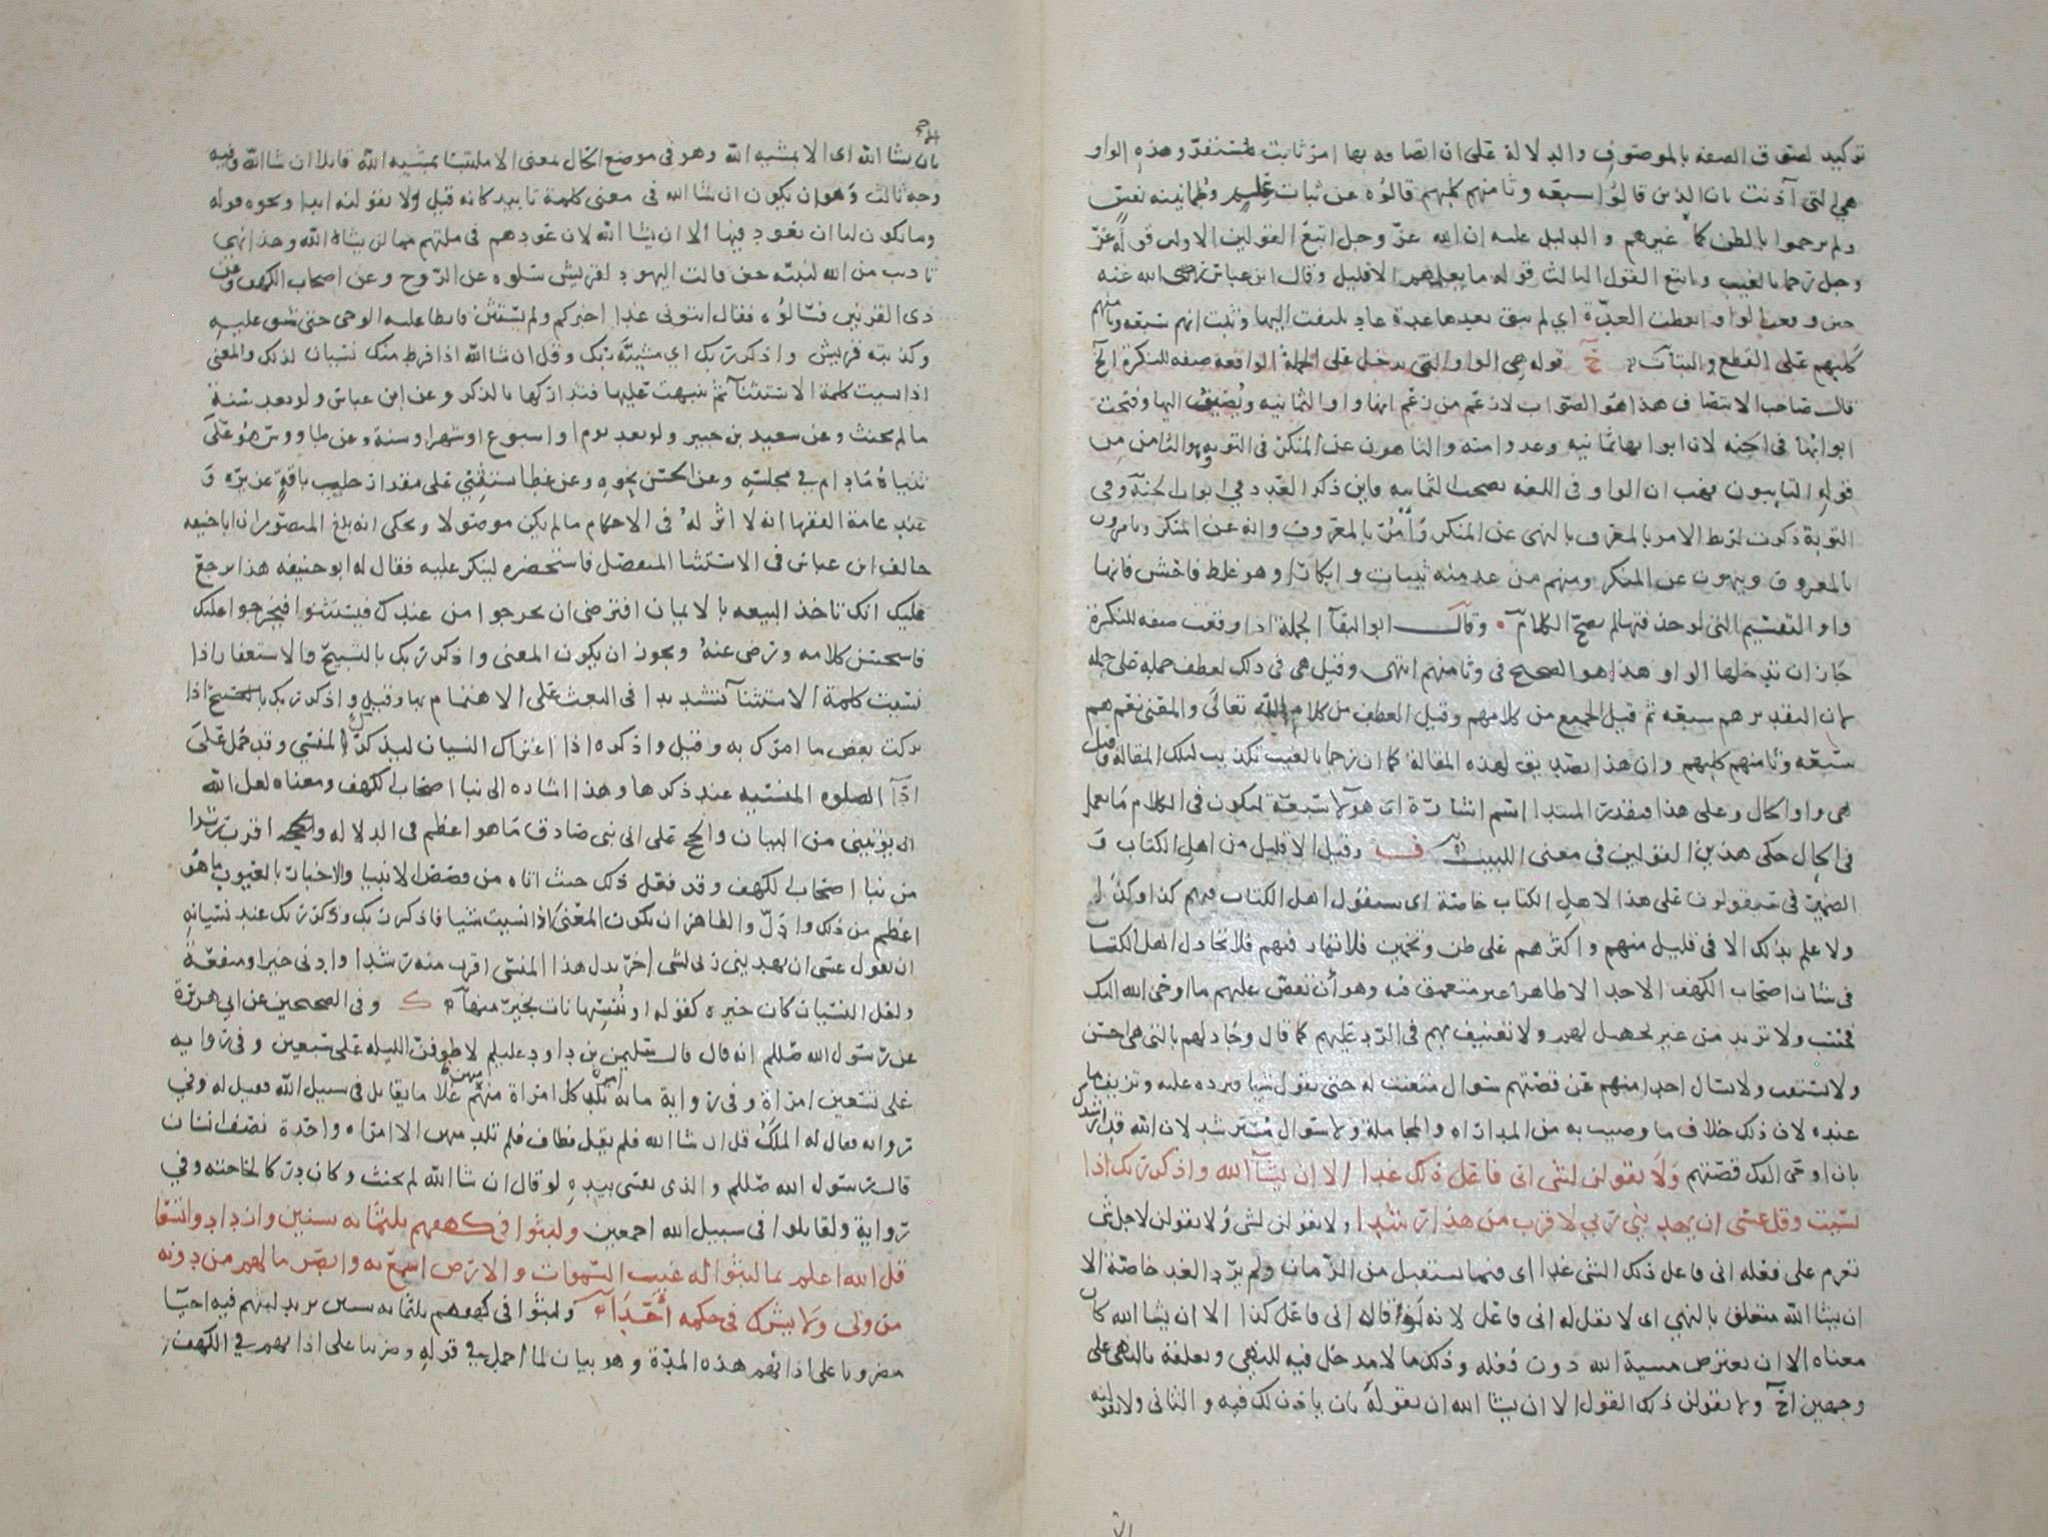 توكيد لصوق الصفه بالموصوف والدلالة على ان اتصافه بها امر ثابت مستقر وهذه الواو
هي التي آذنت بان الذين قالوا سبعه وثامنهم كلبهم قالوه عن ثبات علم وطمانينه نفس
ولم يرجموا بالظن كما غيرهم والدليل عليه ان الله عز وجل اتبع القولين الاولين قوله عز
وجل رجما بالغيب واتبع القول الثالث قوله ما يعلمهم الا قليل وقال ابن عباس رضى الله عنه
حين وقعت الواو انقطعت العدة اي لم يبق بعدها عدة عاد يلتفت اليها وثبت انهم سبعه وثامنهم
كلبهم على القطع والبتات قوله هي الواو التي تدخل على الجملة الواقعه صفه للنكرة الخ
قال صاحب الانتصاف هذا هو الصواب لا زعم من زعم انها واو الثمانيه ويضيف اليها وفتحت
ابوابها فى الجنه لان ابوابها ثمانيه وعدوا منه والناهون عن المنكر فى التوبه هو الثامن من
قوله التايبون فهب ان الواو فى اللغه تصحب الثمانيه فاين ذكر العدد في ابواب الجنة وفي
التوبة ذكرت لتربط الامر بالمعروف بالنهى عن المنكر وأمر بالمعروف وانه عن المنكر ويامرون
بالمعروف وينهون عن المنكر ومنهم من عد منه ثيبات وابكارا وهو غلط فاحش فانها
واو التقسيم التى لو حذفتها لم يصح الكلام وقال ابو البقآ الجملة اذا وقعت صفه للنكرة
جاز ان تدخلها الواو هذا هو الصحيح فى وثامنهم انتهى وقيل هى فى ذلك لعطف جمله على جمله
بان التقدير هم سبعه ثم قيل الجميع من كلامهم وقيل العطف من كلام الله تعالى والمعنى نعم هم
سبعه وثامنهم كلبهم وان هذا تصديق لهذه المقالة كما ان رجما بالغيب تكذيب لتلك المقاله وقيل
هى واو الحال وعلى هذا فيقدر المبتدا اسم اشارة اى هولا سبعة ليكون فى الكلام ما يعمل
فى الحال حكى هذين القولين فى معنى اللبيب ف وقيل الا قليل من اهل الكتاب و
الضمير فى سيقولون على هذا لاهل الكتاب خاصة اى سيقول اهل الكتاب فيهم كذا وكذا
ولا علم بذلك الا فى قليل منهم واكثرهم على ظن وتخمين فلا تمار فيهم فلا تجادل اهل الكتاب
فى شان اصحاب الكهف الا جدالا ظاهرا غير متعمق فيه وهو أن تقص عليهم ما اوحى الله اليك
فحسب ولا تزيد من غير تجهيل لهم ولا تعنيف بهم فى الرد عليهم كما قال وجادلهم بالتى هى احسن
ولا تستفت ولا تسال احدا منهم عن قصتهم سوال متعنت له حتى يقول شيا فترده عليه وتزيف ما
عنده لان ذلك خلاف ما وصيت به من المداراه والمجاملة ولا سوال مسترشد لان الله قد ارشدك
بان اوحى اليك قصتهم ولا تقولن لشى انى فاعل ذلك غدا الا ان يشآ الله واذكر ربك اذا
نسيت وقل عسى ان يهدينى ربي لاقرب من هذا رشدا ولا تقولن لشى ولا تقولن لاجل شى
تعزم على فعله انى فاعل ذلك الشى غدا اى فيما يستقبل من الزمان ولم يرد الغد خاصة الا
ان يشا الله متعلق بالنهي اى لا بقوله انى فاعل لانه لو قال انى فاعل كذا الا ان يشا الله كان
معناه الا ان تعترض مشية الله دون فعله وذلك مما لا مدخل فيه للنهى وتعلقه بالنهى على
وجهين احدهما ولا تقولن ذلك القول الا ان يشا الله ان تقوله بان ياذن لك فيه والثانى ولا تقولنه
بان يشا الله اى الا بمشيه الله وهو فى موضع الحال يعنى الا ملتبسا بمشيه الله قايلا ان شا الله وفيه
وجه ثالث وهو ان يكون ان شا الله فى معنى كلمة تابيد كانه قيل ولا تقولنه ابدا ونحوه قوله
وما يكون لنا ان نعود فيها الا ان يشا الله لان عودهم فى ملتهم مما لن يشاه الله وهذا نهى
تاديب من الله لنبيه حين قالت اليهود لقريش سلوه عن الروح وعن اصحاب الكهف وعن
ذى القرنين فسالوه فقال ايتونى غدا اخبركم ولم يستثن فابطا عليه الوحى حتى شق عليه
وكذبته قريش واذكر ربك اي مشيئة ربك وقل ان شا الله اذا فرط منك نسيان لذلك والمعنى
اذا نسيت كلمة الاستثنآ ثم تنبهت عليها فتداركها بالذكر وعن ابن عباس ولو بعد سنة
ما لم يحنث وعن سعيد بن جبير ولو بعد يوم او اسبوع او شهر او سنة وعن طاووس هو على
ثنياه ما دام في مجلسه وعن الحسن نحوه وعن عطا يستثنى على مقدار حلب ناقة غزيره و
عند عامة الفقها انه لا اثر له فى الاحكام ما لم يكن موصولا ويحكى انه بلغ المنصور ان ابا حنيفه
خالف ابن عباس فى الاستثنا المنفصل فاستحضره لينكر عليه فقال له ابو حنيفه هذا يرجع
عليك انك تاخذ البيعه بالايمان افترضى ان يخرجوا من عندك فيستثنوا فيخرجوا عليك
فاستحسن كلامه ورضى عنه ويجوز ان يكون المعنى واذكر ربك بالتسبيح والاستغفار اذا
نسيت كلمة الاستثنآ تشديدا فى البعث على الاهتمام بها وقيل واذكر ربك اذا
تركت بعض ما امرك به وقيل واذكره اذا اعتراك النسيان ليذكرك المنسي وقد حمل على
ادآ الصلوه المنسيه عند ذكرها وهذا اشاره الى نبا اصحاب الكهف ومعناه لعل الله
يؤتينى من البينات والحجج على انى نبي صادق ما هو اعظم فى الدلاله والحجه اقرب رشدا
من نبا اصحاب الكهف وقد فعل ذلك حيث اتاه من قصص الانبيا والاخبار بالغيوب ما هو
اعظم من ذلك وادل والظاهر ان يكون المعنى اذا نسيت شيا فاذكر ربك وذكر ربك عند نسيانه
ان تقول عسى ان يهدينى ربى لشى اخر بدل هذا المنسى اقرب منه رشدا وادنى خيرا ومنفعة
ولعل النسيان كان خيره كقوله او ننسها نات بخير منها ك وفى الصحيحين عن ابي هريرة
عن رسول الله صللم انه قال قال سليمن بن داود عليلم لاطوفن الليله على سبعين وفى روايه
على تسعين امراة وفى رواية مايه امراه تلد كل امراة منهن غلاما يقاتل فى سبيل الله فقيل له وفي
روايه فقال له الملك قل ان شا الله فلم يقل فطاف فلم تلد منهن الا امراه واحدة نصف انسان
قال رسول الله صللم والذى نفسى بيده لو قال ان شا الله لم يحنث وكان دركا لحاجته وفي
رواية ولقاتلوا فى سبيل الله اجمعين ولبثوا في كهفهم ثلثمائه سنين وازدادوا تسعا
قل الله اعلم بما لبثوا له غيب السموات والارض اسمع به وابصر ما لهم من دونه
من ولى ولا يشرك فى حكمه أحدا ولبثوا فى كهفهم ثلثمائه سنين يريد لبثهم فيه احيا
مضروبا على اذانهم هذه المدة وهو بيان لما اجمل في قوله وضربنا على اذانهم في الكهف